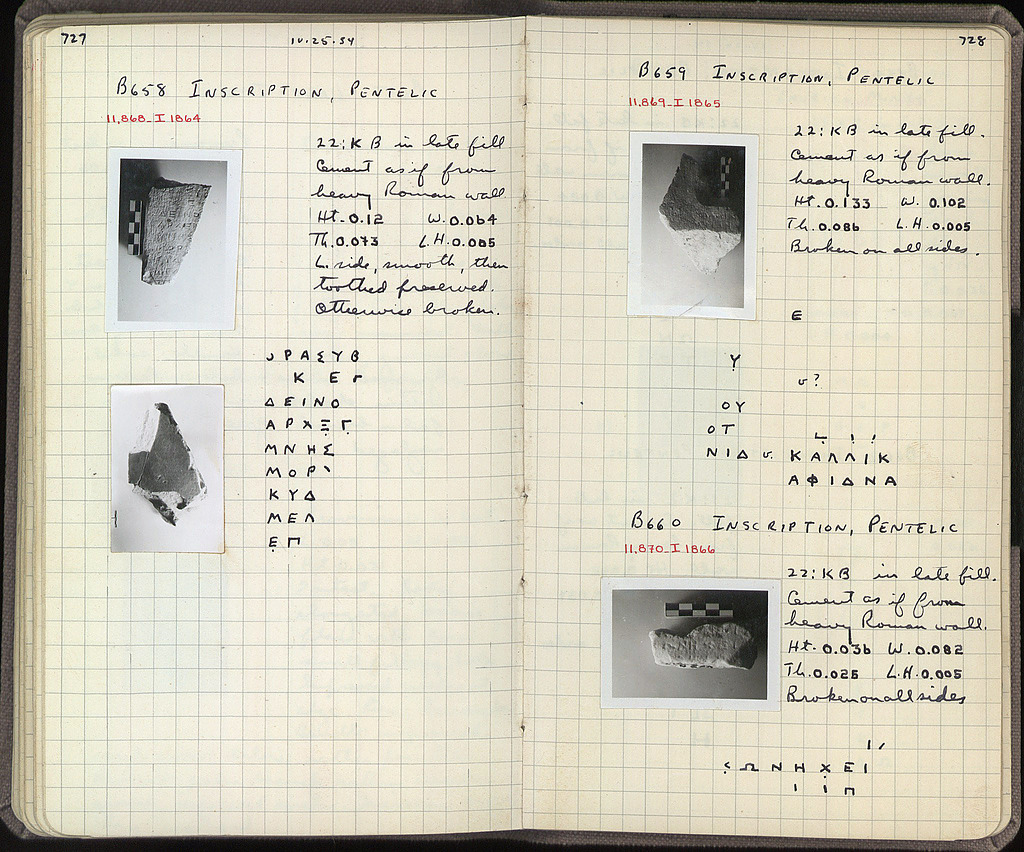 727
10.25.34
B658 INSCRIPTION, PENTELIC
11,868_I 1864
22:KB in late fill
Cement as if from
heavy Roman wall.
Ht.0.12 W.0.064
Th.0.073 L.H.0.005
L. side, smooth, then
toothed preserved.
Otherwise broken.
ΡΑΣΥΒ
Κ ΕΓ
ΔΕΙΝΟ
ΑΡΧΕΓ
ΜΝΗΣ
ΜΟΡ
ΚΥΔ
ΜΕΛ
ΕΠ
728
B659 INSCRIPTION, PENTELIC
11,869_I 1865
22:KB in late fill.
Cement as if from
heavy Roman wall.
Ht.0.133 W. 0.102
Th.0.086 L.H.0.005
Broken on all sides.
Ε
Υ
υ?
ΟΥ
ΟΤ
ΝΙΔ υ. ΚΑΛΛΙΚ
ΑΦΙΔΝΑ
B660 INSCRIPTION, PENTELIC
11,870_I 1866
22:KB in late fill.
Cement as if from
heavy Roman wall.
Ht.0.036 W.0.082
Th.0.025 L.H.0.005
Broken on all sides
ΩΝΗΧΕΙ
Ι Ι Π